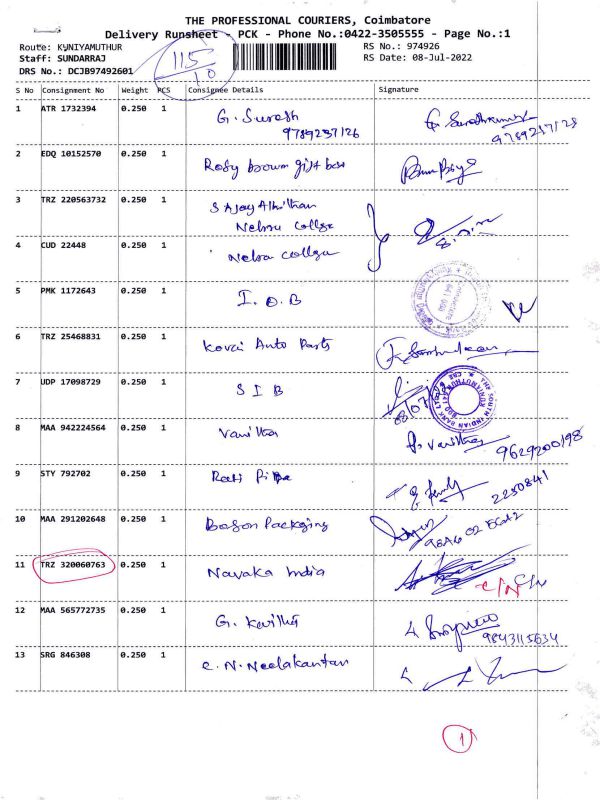 THE PROFESSIONAL COURIERS, Coimbatore
Delivery Runsheet - PCK - Phone No.:0422-3505555 - Page No.:1
Route: KUNIYAMUTHUR
RS No.: 974926
Staff: SUNDARRAJ
RS Date: 08-Jul-2022
DRS No.: DCJB97492601
115/10
S No Consignment No Weight PCS Consignee Details Signature
1 ATR 1732394 0.250 1 G. Suresh
9789237126
2 EDQ 10152570 0.250 1 Rosy brown gift box
3 TRZ 220563732 0.250 1 S Ajay
Nehru college
4 CUD 22448 0.250 1 Nehru college
5 PMK 1172643 0.250 1 I.O.B
6 TRZ 25468831 0.250 1 Kovai Auto Parts
7 UDP 17098729 0.250 1 S I B
8 MAA 942224564 0.250 1 Vanitha P. Vanitha
9629200198
9 STY 792702 0.250 1
2250841
10 MAA 291202648 0.250 1 Packging
11 TRZ 320060763 0.250 1 Navaka India
C/N C/N
12 MAA 565772735 0.250 1 G. Kavitha
9843115634
13 SRG 846308 0.250 1 C. N. Neelakantan
1